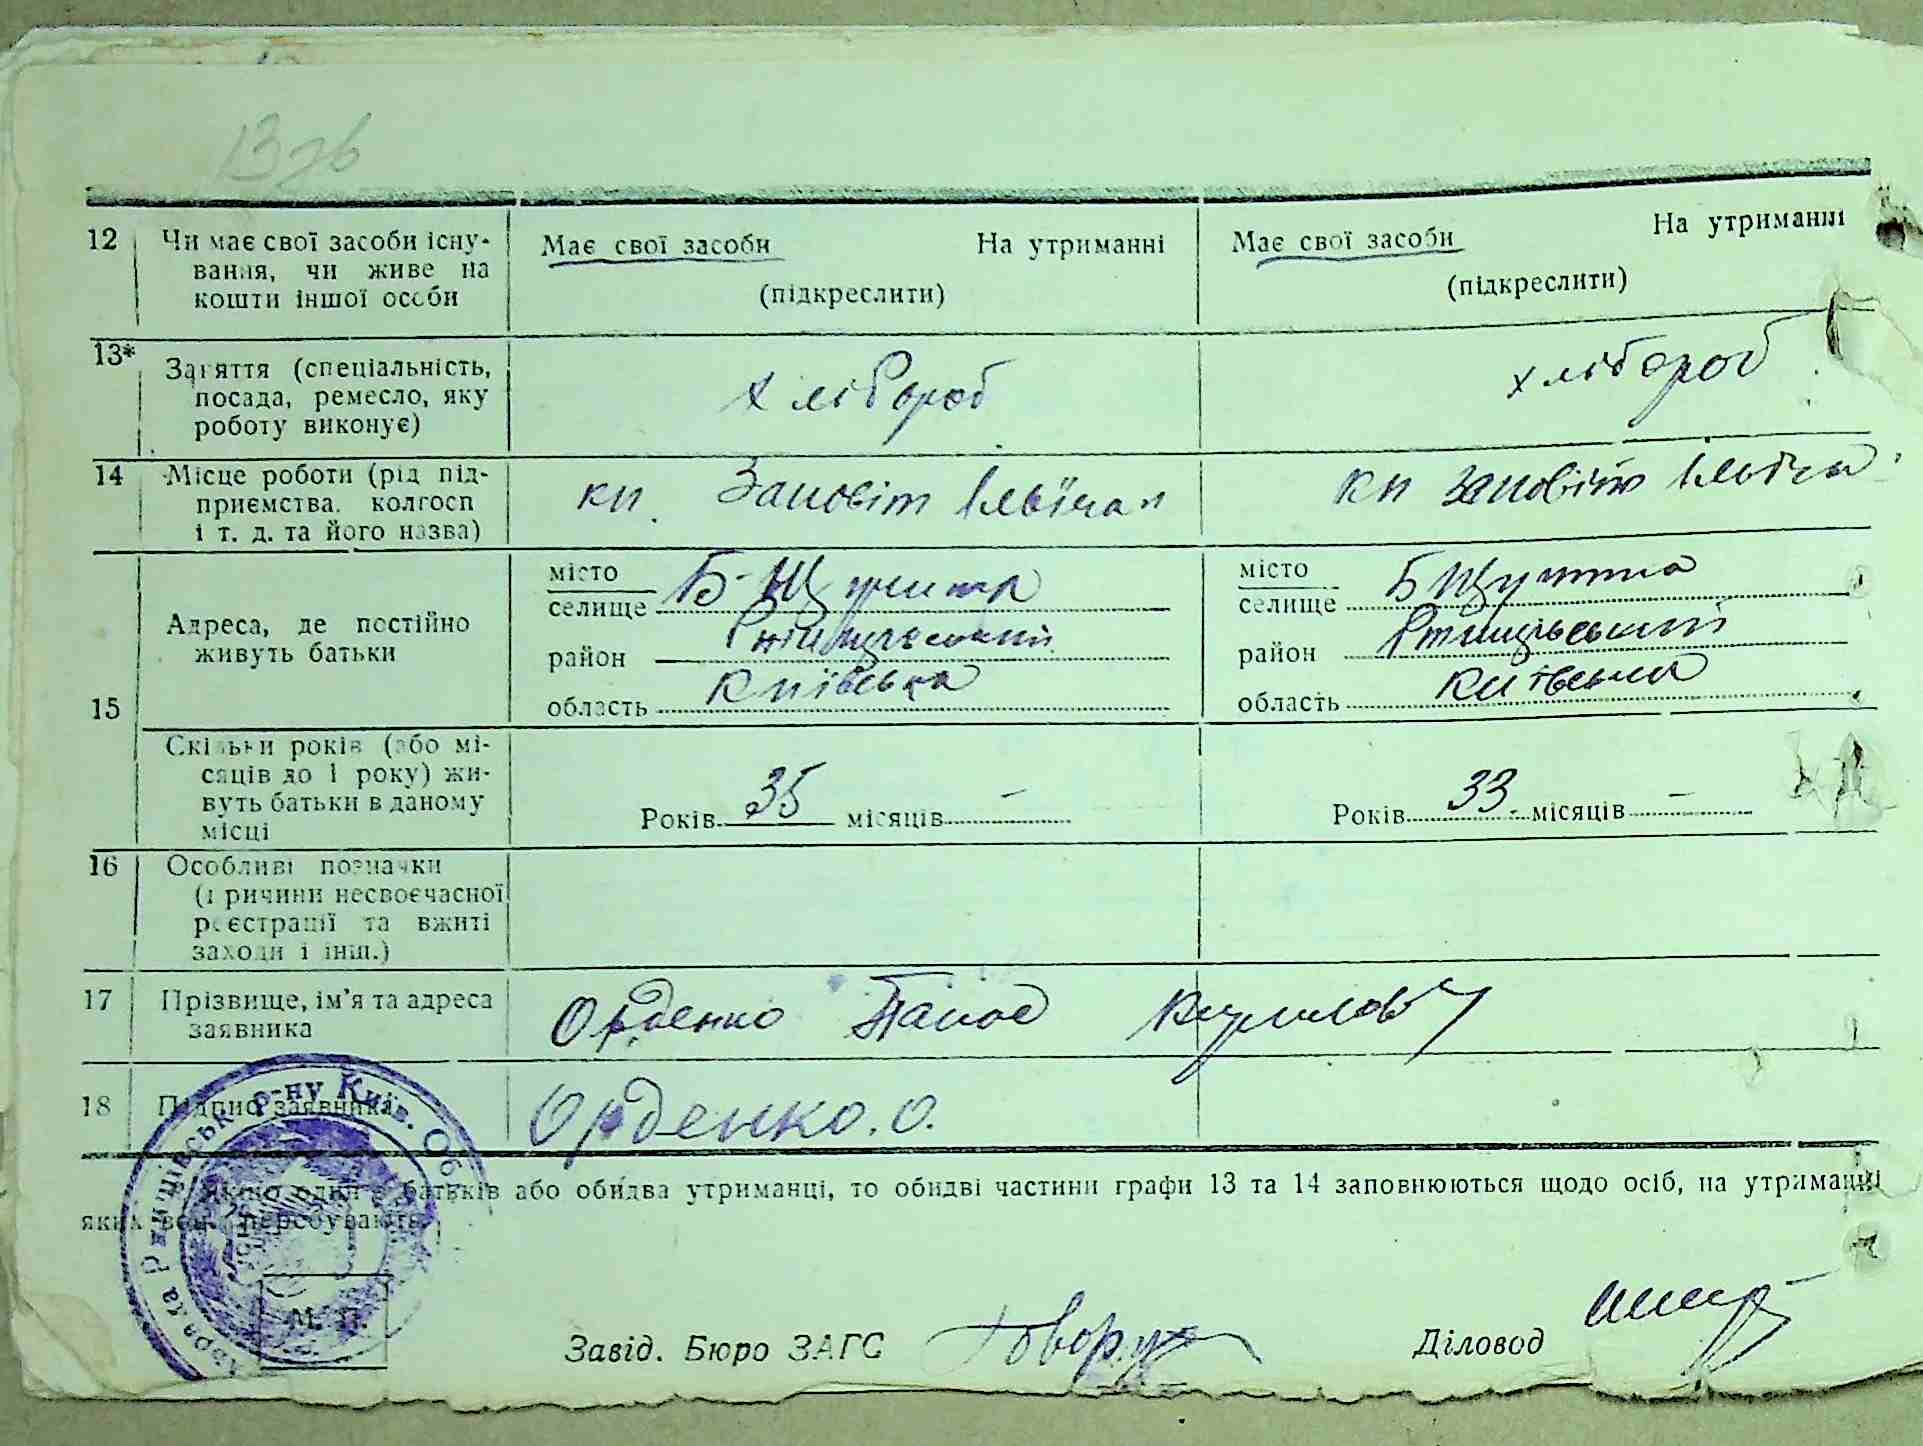 13 зв
12 Чи має свої засоби існу-
вання, чи живе на
кошти іншої особи
Має свої засоби На утриманні
(підкреслити)
Має свої засоби На утриманні
(підкреслити)
13* Заняття (спеціальність,
посада, ремесло, яку
роботу виконує)
хлібороб
хлібороб
14 Місце роботи (рід під-
приємства, колгосп
і т. д. та його назва)
кп. Заповіт Ілліча"
кп Заповіт Ілліча
15
Адреса, де постійно
живуть батьки
місто
селище Б-Щу
район
область Київська
місто
селище Б Щу
район
область Київська
Скільки років (або мі-
сяців до 1 року) жи-
вуть батьки в даному
місці
Років 35 місяців —
Років 33 місяців —
16 Особливі позначки
(причини несвоєчасної
реєстрації та вжиті
заходи і інш.)
17 Прізвище, ім'я та адреса
заявника
Орденко Панас Кирилов
18 Підпис заявника
Орденко. О.
Якщо один з батьків або обидва утриманці, то обидві частини графи 13 та 14 заповнюються щодо осіб, на утриманні
яких вони перебувають.
р-ну Київ. Об
М. П.
Завід. Бюро ЗАГС
Діловод